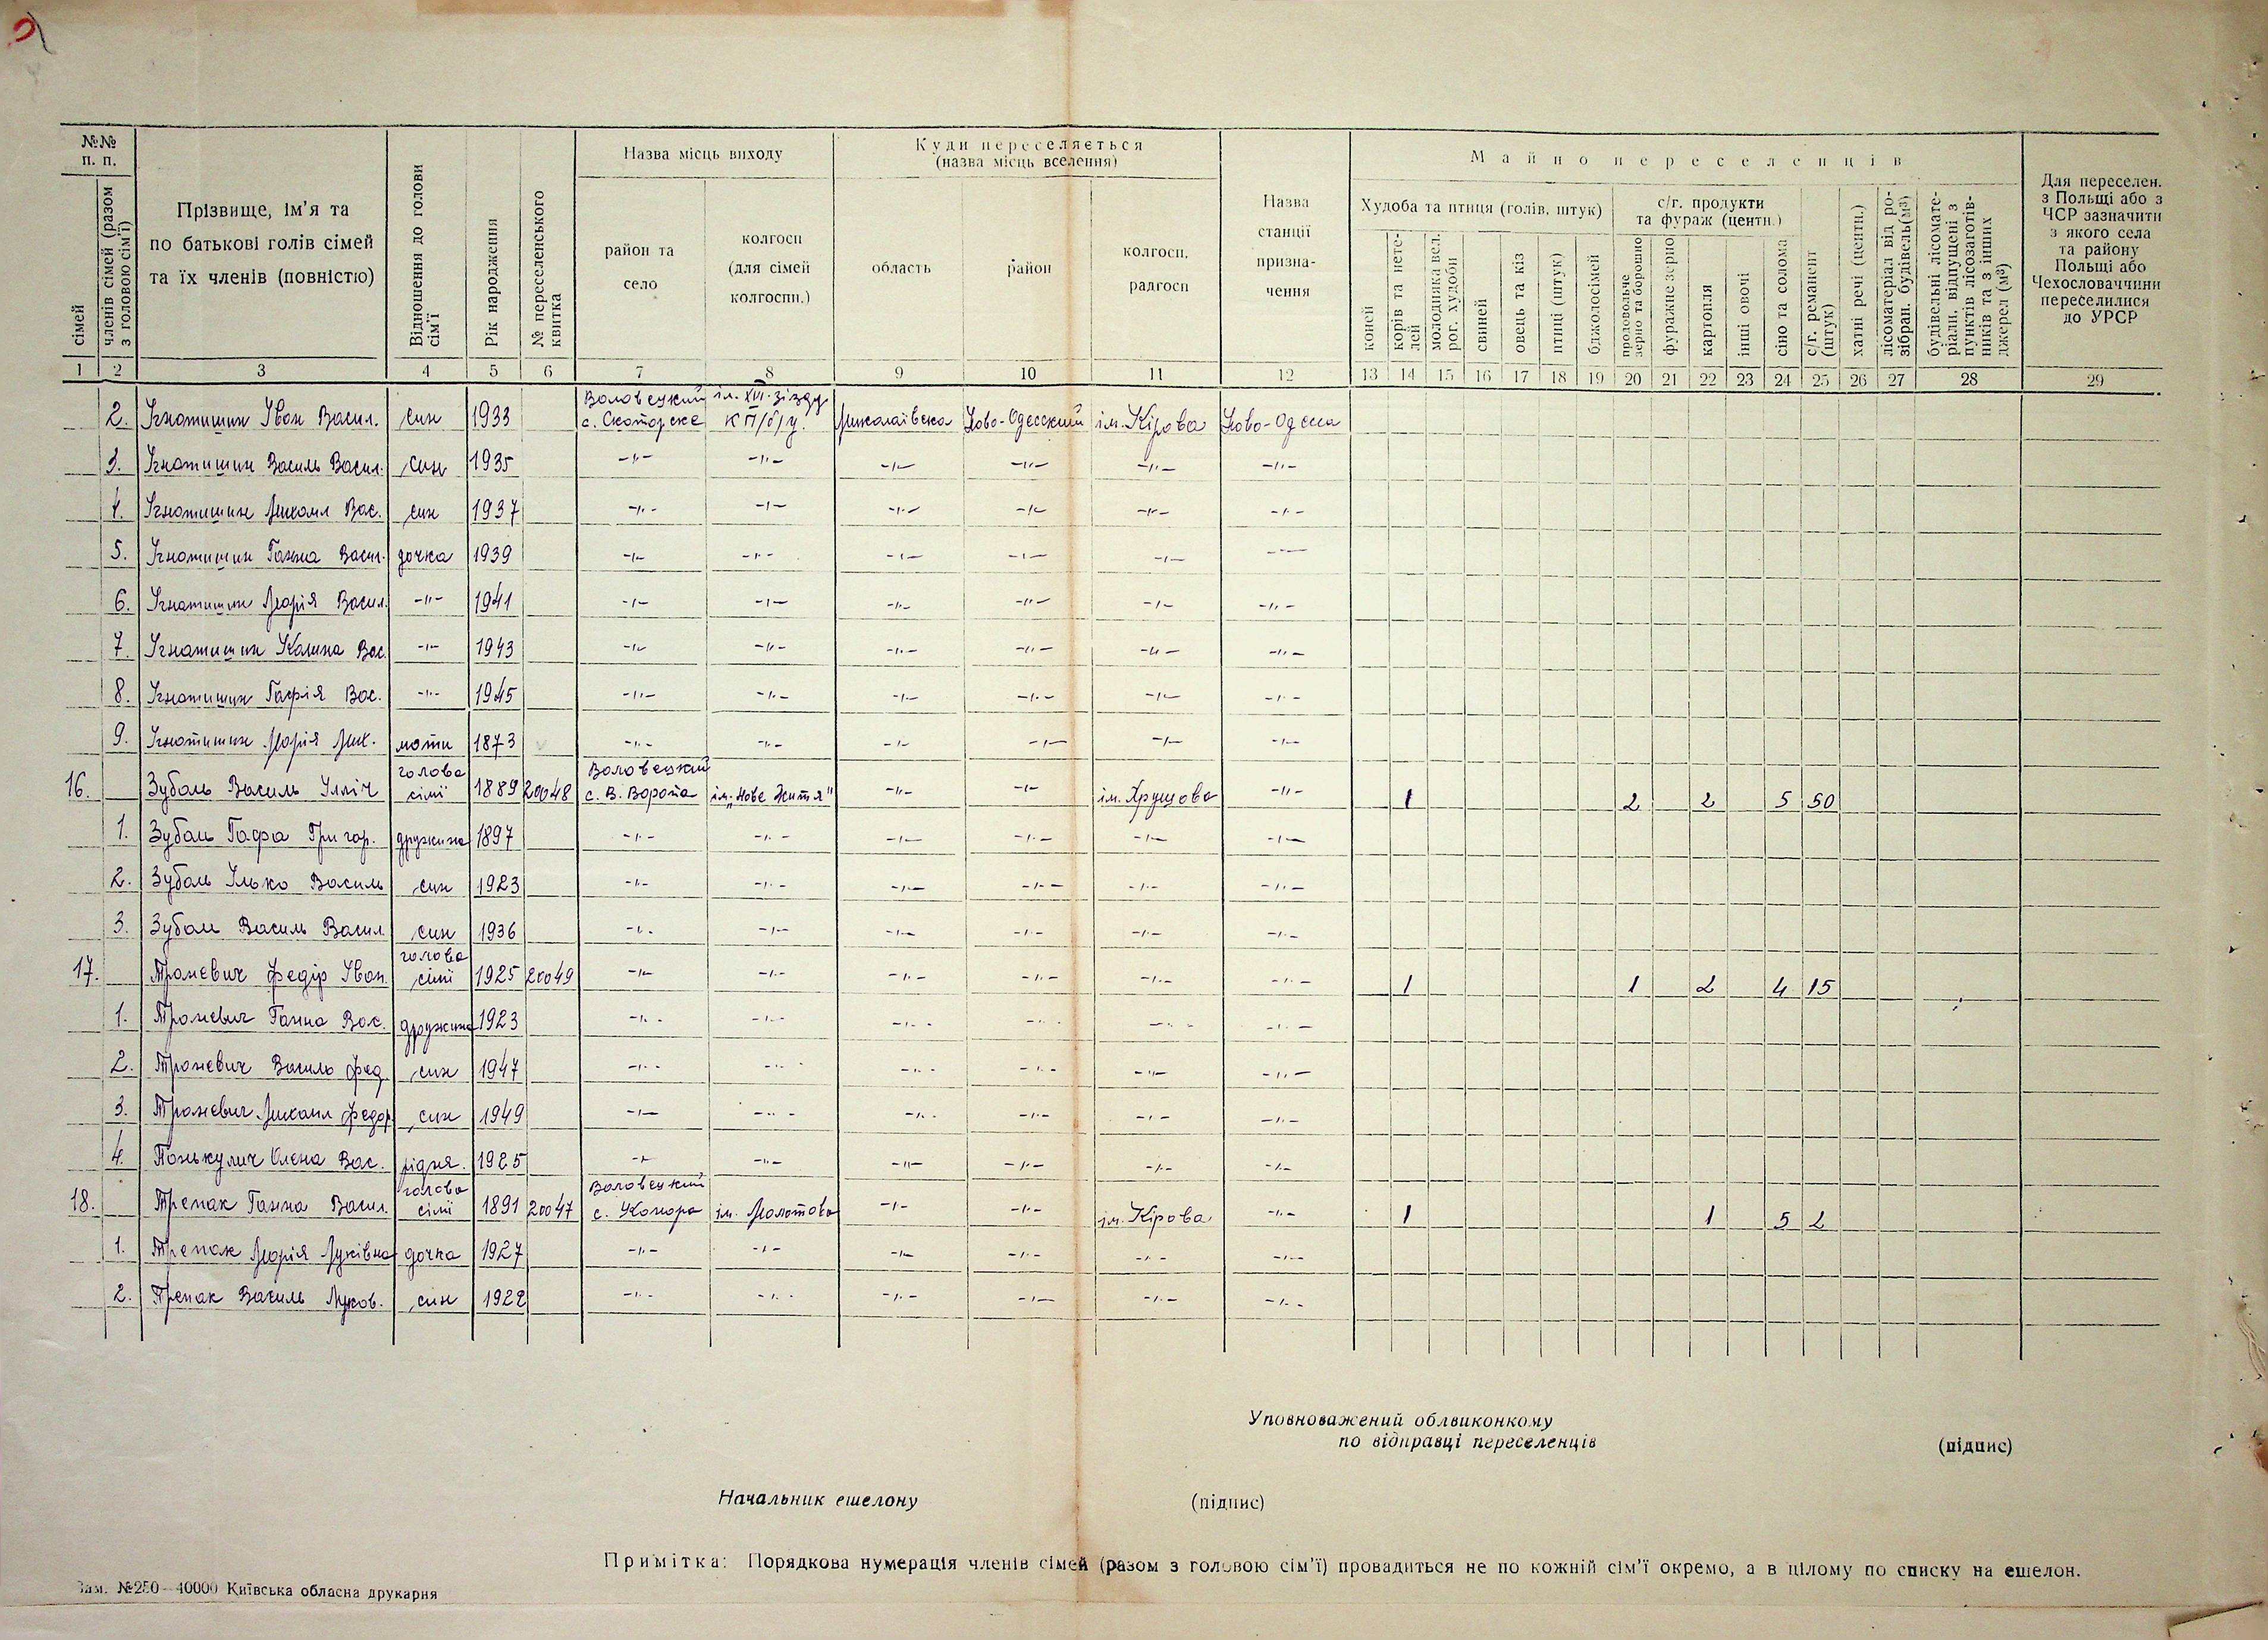 №№ п. п.
сімей
членів сімей (разом з головою сім'ї)
Прізвище, ім'я та
по батькові голів сімей
та їх членів (повністю)
Відношення до голови сім'ї
Рік народження
№ переселенського квитка
Назва місць виходу
район та
село
колгосп
(для сімей
колгоспн.)
Куди переселяється
(назва місць вселення)
область
район
колгосп,
радгосп
Назва
станції
призна-
чення
Майно переселенців
Худоба та птиця (голів, штук)
коней
корів та нете-
лей
молодняка вел.
рог. худоби
свиней
овець та кіз
птиці (штук)
бджолосімей
с/г. продукти
та фураж (центн.)
продовольче
зерно та борошно
фуражне зерно
картопля
інші овочі
сіно та солома
с/г. реманент
(штук)
хатні речі (центн.)
лісоматеріал від ро-
зібран. будівель(м³)
будівельні лісомате-
ріали, відпущені з
пунктів лісозаготів-
ників та з інших
джерел (м³)
Для переселен.
з Польщі або з
ЧСР зазначити
з якого села
та району
Польщі або
Чехословаччини
переселилися
до УРСР
1 2 3 4 5 6 7 8 9 10 11 12 13 14 15 16 17 18 19 20 21 22 23 24 25 26 27 28 29
2. Ігнатишин Іван Васил. син 1933 Воловецкий с. Скотарске ім. XVI зізду КП/б/у. Миколаівска Ново-Одесский ім. Кірова Ново-Одеса
3. Ігнатишин Василь Васил. син 1935 -"- -"- -"- -"- -"- -"-
4. Ігнатишин Михаил Вас. син 1937 -"- -"- -"- -"- -"- -"-
5. Ігнатишин Ганна Васил. дочка 1939 -"- -"- -"- -"- -"- -"-
6. Ігнатишин Марія Васил. -"- 1941 -"- -"- -"- -"- -"- -"-
7. Ігнатишин Калина Вас. -"- 1943 -"- -"- -"- -"- -"- -"-
8. Ігнатишин Гафія Вас. -"- 1945 -"- -"- -"- -"- -"- -"-
9. Ігнатишин Марія Мих. мати 1873 -"- -"- -"- -"- -"- -"-
16. Зубаль Василь Ілліч голова сімї 1889 20048 Воловецкий с. В. Ворота ім. „Нове Житя" -"- -"- ім. Хрущова -"- 1 2 2 5 50
1. Зубаль Гафа Григор. дружина 1897 -"- -"- -"- -"- -"- -"-
2. Зубаль Ілько Василь син 1923 -"- -"- -"- -"- -"- -"-
3. Зубаль Василь Васил. син 1936 -"- -"- -"- -"- -"- -"-
17. Траневич Федір Іван. голова сімї 1925 20049 -"- -"- -"- -"- -"- -"- 1 1 2 4 15
1. Траневич Ганна Вас. дружина 1923 -"- -"- -"- -"- -"- -"-
2. Траневич Василь Фед. син 1947 -"- -"- -"- -"- -"- -"-
3. Траневич Михаил Федор син 1949 -"- -"- -"- -"- -"- -"-
4. Панькулич Олена Вас. рідня. 1925 -"- -"- -"- -"- -"- -"-
18. Трепак Ганна Васил. голова сімї 1891 20047 Воловецкий с. Канора ім. Молотова -"- -"- ім. Кірова -"- 1 1 5 2
1. Трепак Марія Луківна дочка 1927 -"- -"- -"- -"- -"- -"-
2. Трепак Василь Луков. син 1922 -"- -"- -"- -"- -"- -"-
Уповноважений облвиконкому
по відправці переселенців
(підпис)
Начальник ешелону
(підпис)
Примітка: Порядкова нумерація членів сімей (разом з головою сім'ї) провадиться не по кожній сім'ї окремо, а в цілому по списку на ешелон.
Зам. №250—40000 Київська обласна друкарня